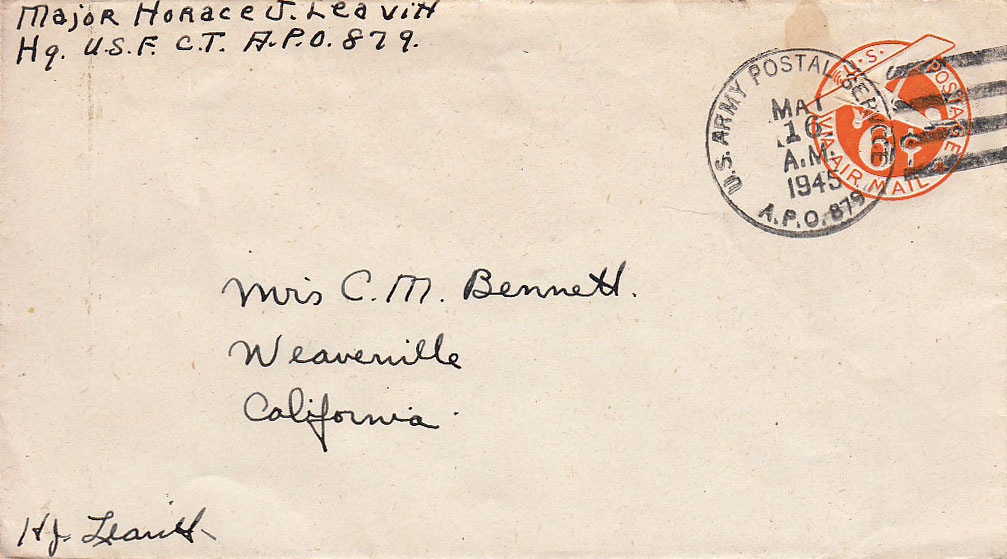 Major Horace J. Leavitt
Hq. U.S.F. C.T. A.P.O. 879.
U.S. ARMY POSTAL SERVICE
MAY
16
A.M.
1945
A.P.O. 879
U.S. POSTAGE
6¢
VIA AIR MAIL
Mrs C. M. Bennett.
Weaverville
California.
HJ Leavitt